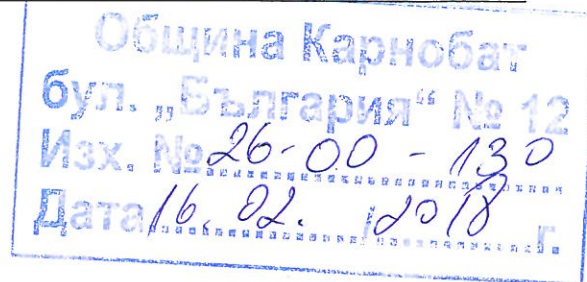 Община Карнобат
бул. „България“ № 12
Изх. № 26-00-130
Дата 16.02. /2018 г.